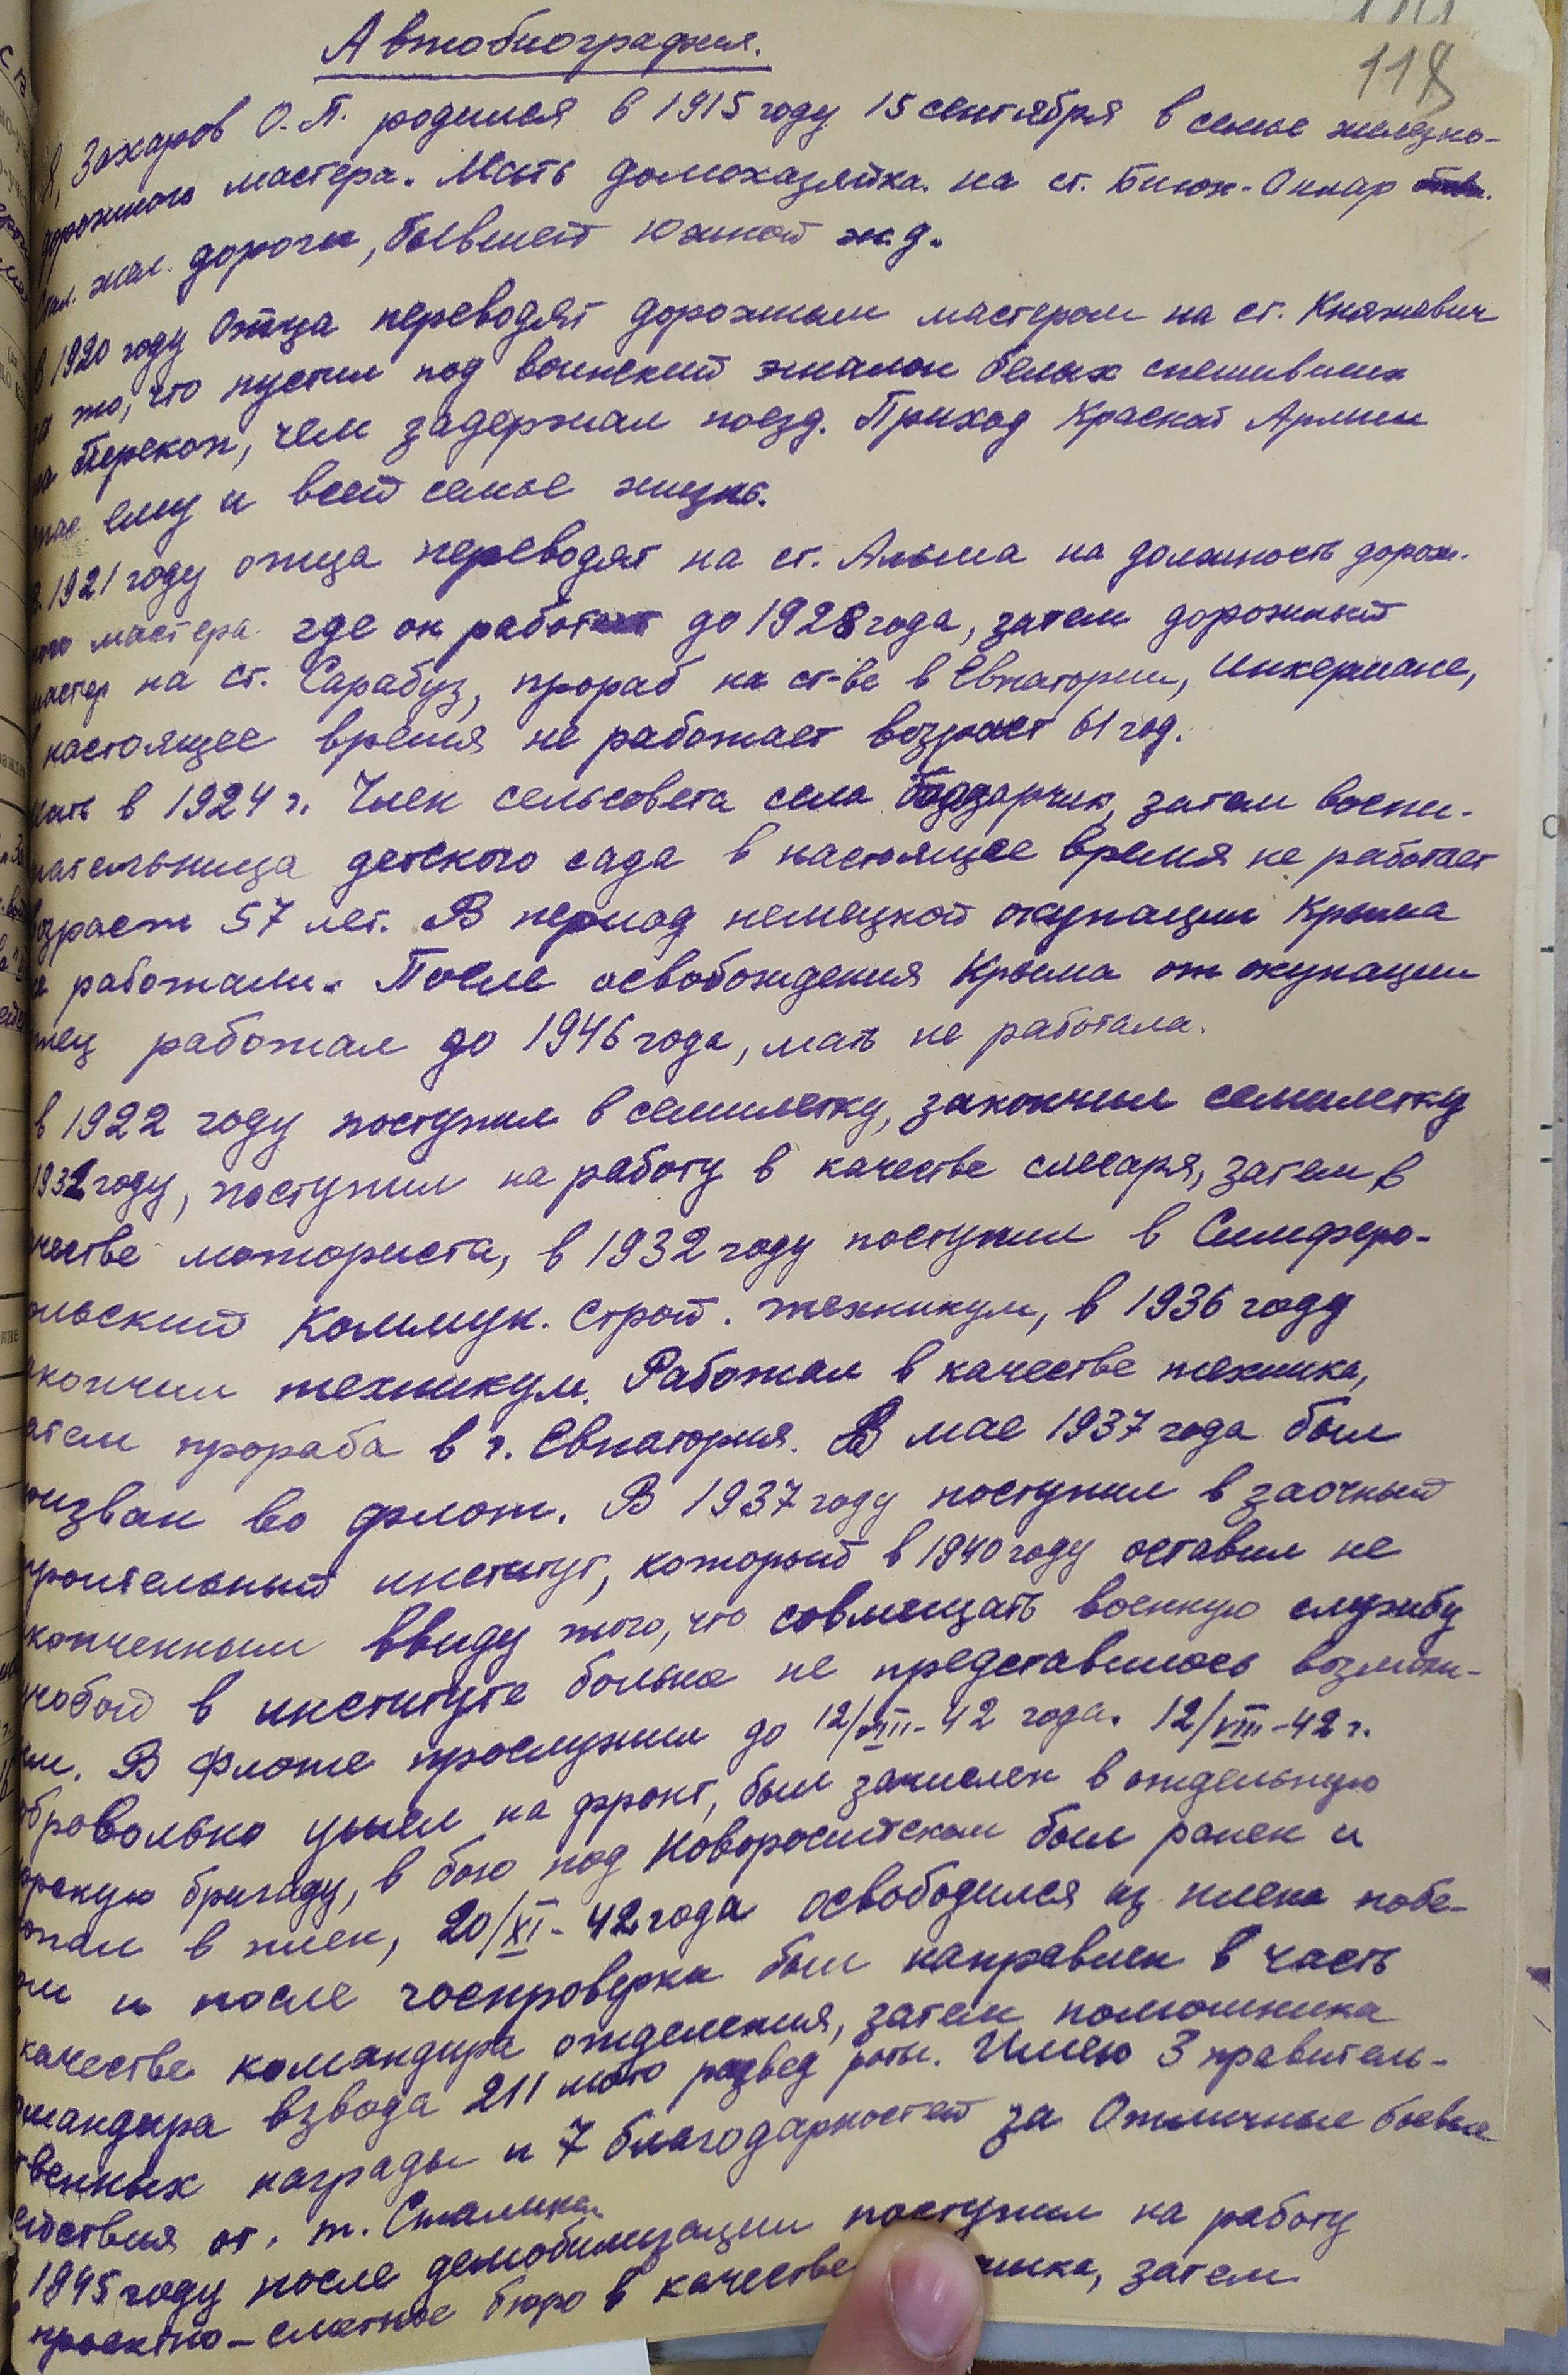 118
Автобиография.
Я, Захаров О. П. родился в 1915 году 15 сентября в семье железно-
дорожного мастера. Мать домохозяйка. на ст. Биюк-Онлар
Стал. жел. дороги, бывшей Южной ж.д.
В 1920 году Отца переводят дорожным мастером на ст. Княжевич
за то, что пустил под воинский эшалон белых спешивших
на Перекоп, чем задержал поезд. Приход Красной Армии
ему и всей семье жизнь.
В 1921 году отца переводят на ст. Альма на должность дорож-
ного мастера где он работает до 1928 года, затем дорожный
мастер на ст. Сарабуз, прораб на ст-ве в Евпатории, Инкермане,
в настоящее время не работает возраст 61 год.
Мать в 1924 г. Член сельсовета села затем воспи-
тательница детского сада в настоящее время не работает
возраст 57 лет. В период немецкой окупации Крыма
не работали. После освобождения Крыма от окупации
отец работал до 1946 года, мать не работала.
в 1922 году поступил в семилетку, закончил семилетку
1932 году, поступил на работу в качестве слесаря, затем в
качестве моториста, в 1932 году поступил в Симферо-
польский Коммун. строй. техникум, в 1936 году
закончил техникум. Работал в качестве техника,
затем прораба в г. Евпатория. В мае 1937 года был
призван во флот. В 1937 году поступил в заочный
строительный институт, который в 1940 году оставил не
законченным ввиду того, что совмещать военную службу
учобой в институте больше не представилось возмож-
ным. В Флоте прослужил до 12/VIII-42 года. 12/VIII-42 г.
добровольно ушел на фронт, был зачислен в отдельную
морскую бригаду, в бою под Новоросийском был ранен и
попал в плен, 20/XI-42 года освободился из плена побе-
гом и после госпроверки был направлен в часть
качестве командира отделения, затем помошника
командира взвода 211 мото развед роты. Имею 3 правитель-
ственных награды и 7 благодарностей за Отличные боевые
действия от. т. Сталина.
1945 году после демобилизации поступил на работу
проектно-сметное бюро в качестве затем